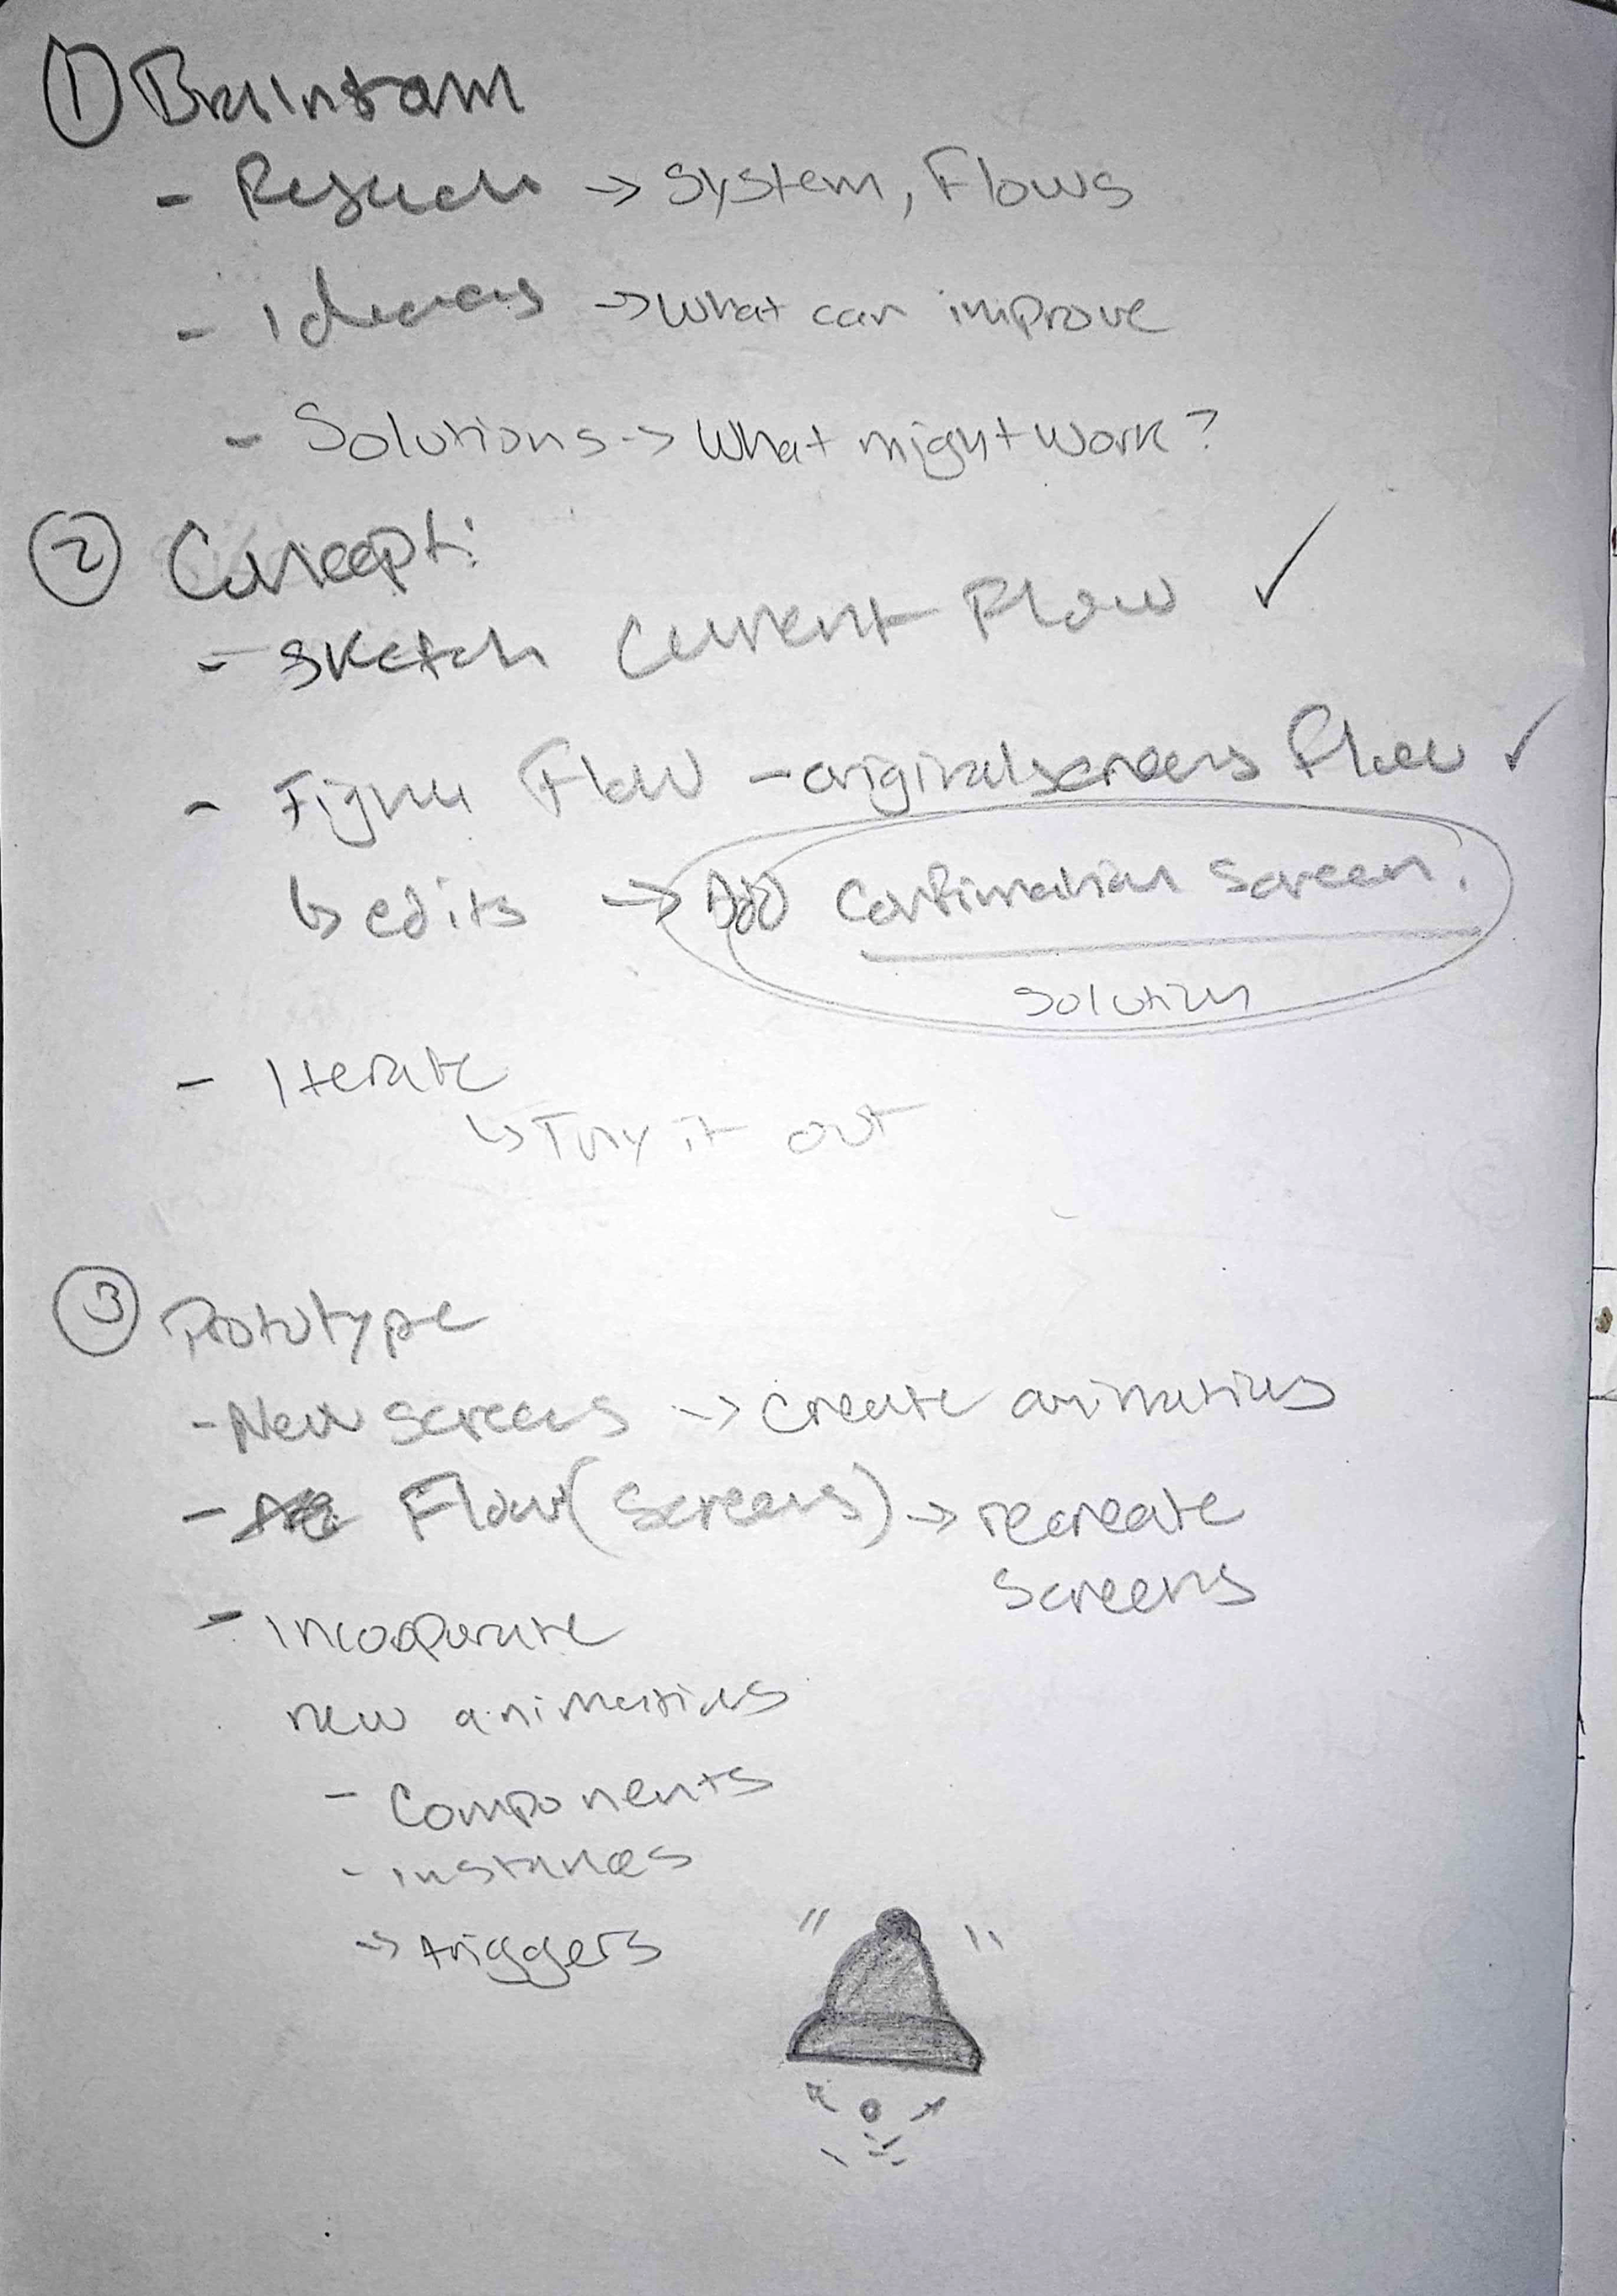 ① Brainstorm
- Research → System, Flows
- Ideas → What can improve
- Solutions → What might work?
② Concept:
- Sketch Current Flow ✓
- Figma Flow - original screens Flow ✓
↳ edits → Add Confirmation Screen.
Solution
- Iterate
↳ Try it out
③ Prototype
- New screens → create animations
- Flow (Screens) → recreate
screens
- Incorporate
new animations
- Components
- instances
→ triggers